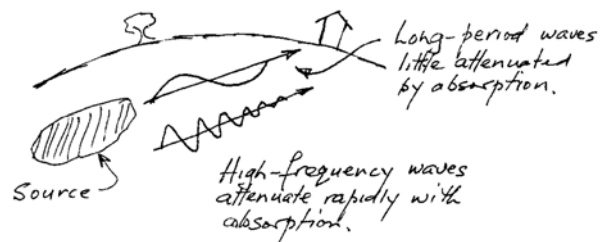 Long-period waves
little attenuated
by absorption.
Source
High-frequency waves
attenuate rapidly with
absorption.